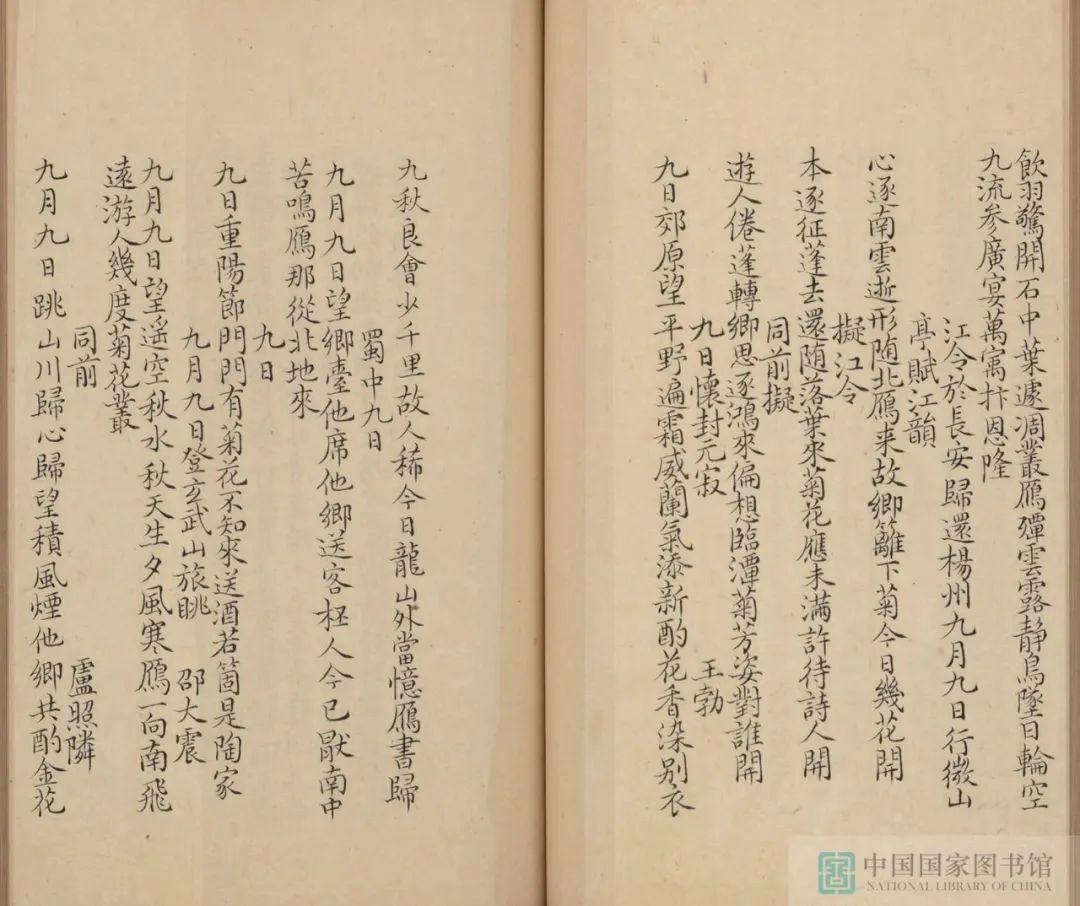 飲羽驚開石中葉遽凋叢鴈殫雲露静鳥墜日輪空
九流參廣宴萬㝢抃恩隆
江令於長安歸還楊州九月九日行微山
亭賦江韻
心逐南雲逝形随北鴈来故鄉籬下菊今日幾花開
擬江令
本逐征蓬去還随落葉來菊花應未满許待詩人開
同前擬
遊人倦蓬轉鄉思逐鴻來偏想臨潭菊芳姿對誰開
九日懷封元寂 王勃
九日郊原望平野遍霜威蘭氣添新酌花香染别衣
九秋良會少千里故人稀今日龍山外當憶鴈書歸
蜀中九日
九月九日望鄉臺他席他鄉送客杯人今已厭南中
苦鳴鴈那從北地來
九日
九日重陽節門門有菊花不知來送酒若箇是陶家
九月九日登玄武山旅眺 邵大震
九月九日望遥空秋水秋天生夕風寒鴈一向南飛
遠游人幾度菊花叢
同前 盧照隣
九月九日眺山川歸心歸望積風煙他鄉共酌金花
中国国家图书馆
NATIONAL LIBRARY OF CHINA